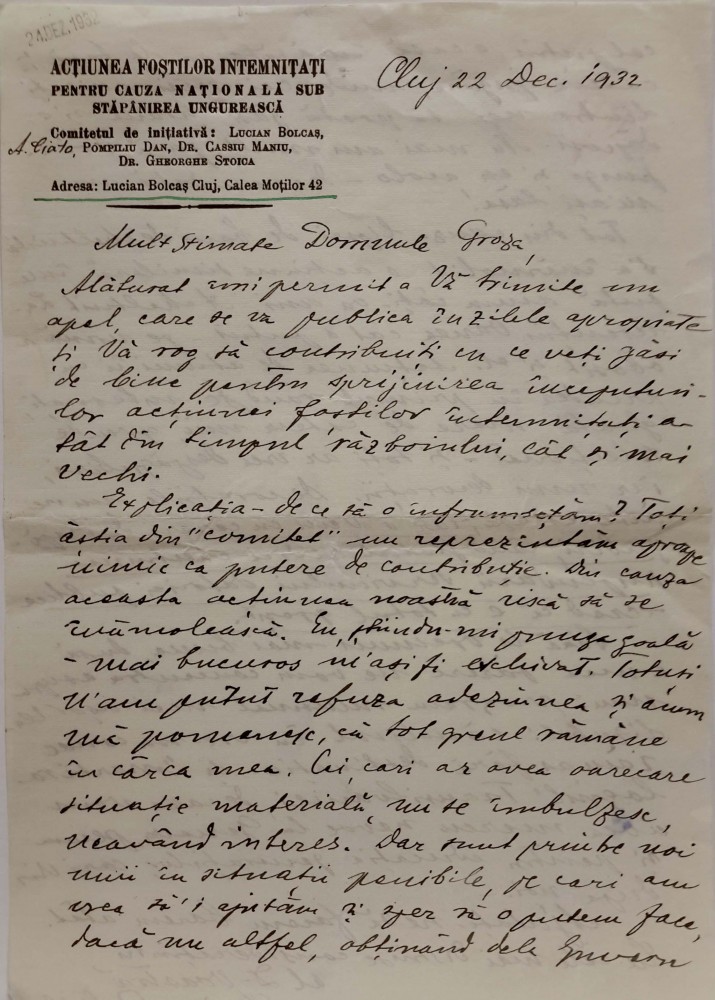 24 DEZ. 1932
ACȚIUNEA FOȘTILOR INTEMNIȚAȚI
PENTRU CAUZA NAȚIONALĂ SUB
STĂPÂNIREA UNGUREASCĂ
Comitetul de inițiativă: LUCIAN BOLCAȘ,
A. Ciato, POMPILIU DAN, DR. CASSIU MANIU,
DR. GHEORGHE STOICA
Adresa: Lucian Bolcaș Cluj, Calea Moților 42
Cluj 22 Dec. 1932
Mult stimate Domnule Groza,
Alăturat îmi permit a Vă trimite un
apel, care se va publica în zilele apropiate
și Vă rog să contribuiți cu ce veți găsi
de bine pentru sprijinirea începuturi-
lor acțiunei foștilor întemnițați a-
tât din timpul războiului, cât și mai
vechi.
Explicația – de ce să o înfrumsețăm? Toți
ăștia din "comitet" nu reprezintăm aproape
nimic ca putere de contribuție. Din cauza
aceasta acțiunea noastră riscă să se
înămolească. Eu, știindu-mi punga goală
– mai bucuros m'ași fi eschivat. Totuși
n'am putut refuza adeziunea și acum
mă pomenesc, că tot greul rămâne
în cârca mea. Cei, cari ar avea oarecare
situație materială, nu se îmbulzesc,
neavând interes. Dar sunt printre noi
unii în situații penibile, pe cari am
vrea să-i ajutăm și sper să o putem face,
dacă nu altfel, obținând dela Guvern